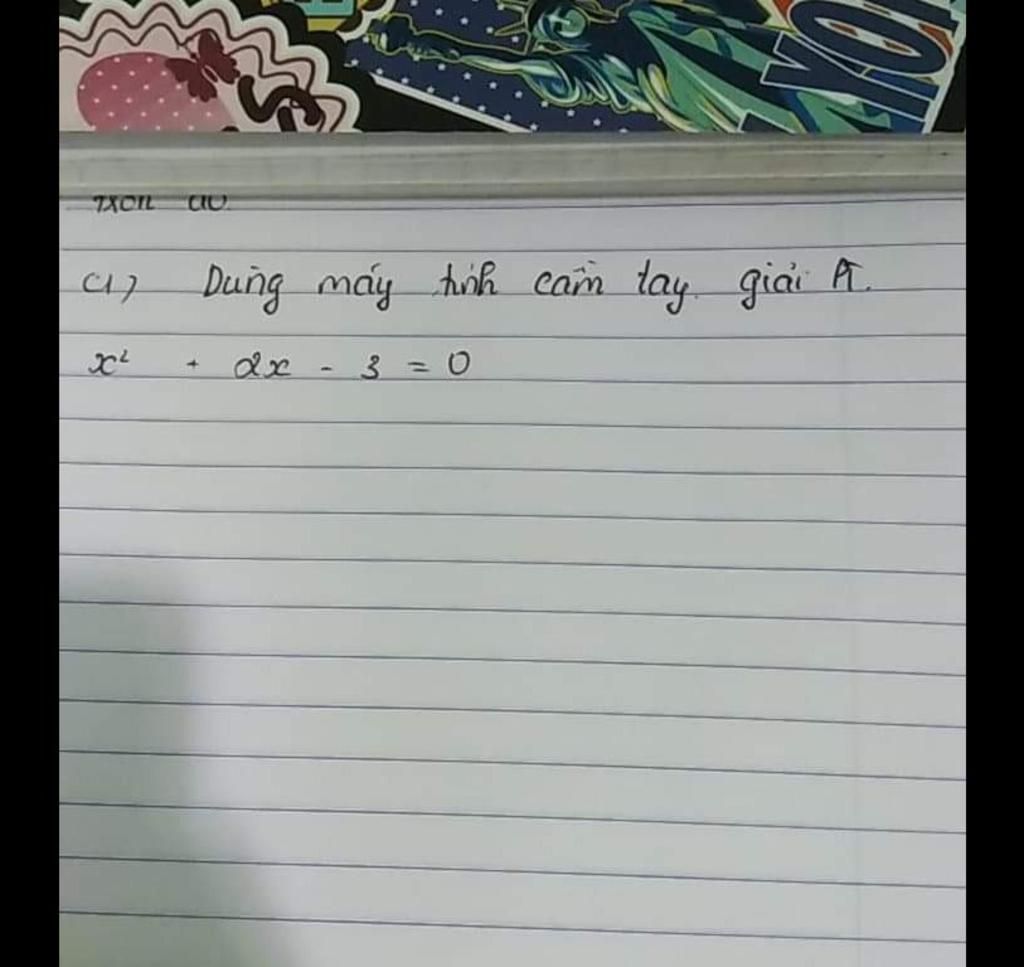 YOR
C1) Dùng máy tính cầm tay giải PT.
x² + 2x - 3 = 0